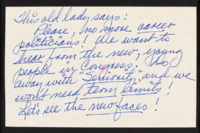 This old lady says:
Please, no more career
politicians! We want to
hear from the new, young
people in Congress. Do
away with "Seniority" and we
won't need term limits!
Let's see the new faces!